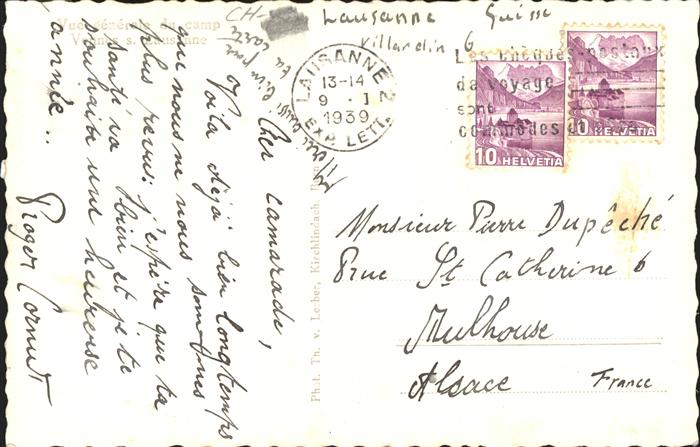 Vue générale du camp
Vennes s. Lausanne
CH-
Lausanne Suisse
Villardin 6
LAUSANNE 2
13-14
9.I
1939
EXP. LETT.
Les chèques postaux
de voyage
sont
commodes
10 HELVETIA
10 HELVETIA
Cher camarade,
Voilà déjà bien longtemps
que nous ne nous sommes
plus revus; j'espère que ta
santé va bien et je te
souhaite une heureuse
année..
Roger Cornut
Phot. Th. v. Lerber, Kirchlindach,
Monsieur Pierre Dupêché
Rue St Catherine 6
Mulhouse
Alsace France